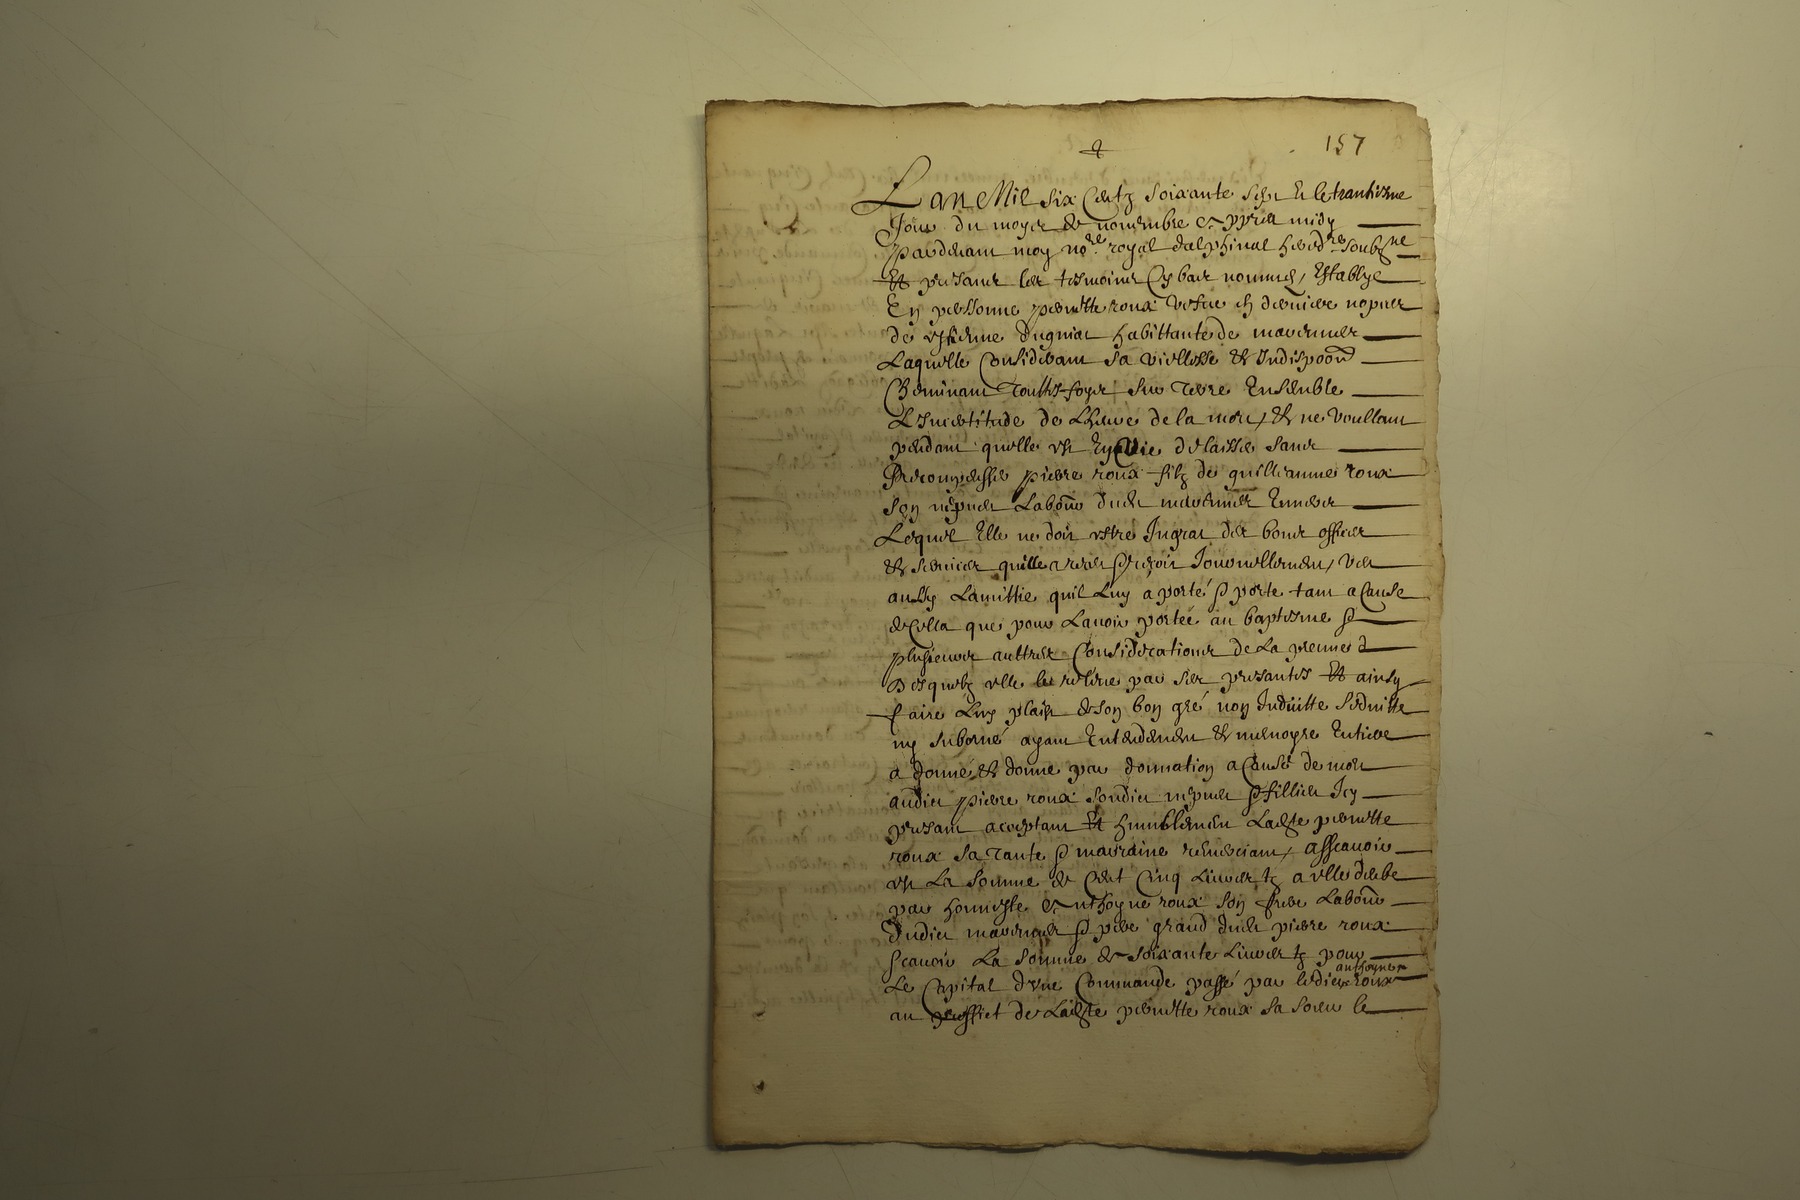 157
L'an Mil six Centz soixante sept Et le trantiesme
Jour du moys de novembre appres midy
pardevant moy no.re royal dalphinal hered.re soubz.ne
Et presantz les tesmoins Cy bas nommes, Establye
En personne pernette roux vefve en dernieres nopces
de estienne habittante de
Laquelle Considerant sa viellesse et Indispoon
Cheminant touttesfoys sur terre Ensemble
L'Incertitude de Lheure de la mort, et ne voullant
pendant quelle est En Vie delaisser sans
Recompensse pierre roux filz de guilliaume roux
son nepveu Labour dudit Envers
Lequel Elle ne doit estre Ingrat des bons offices
et services quille a receu & reçoit Journellement, veu
aussy Lamittie quil Luy a porté & porte tant a Cause
de Cella que pour Lavoir portée au baptesme &
plusieurs auttres Considerations de La preuve d
Desquelz elle le relève par ses presantes Et ainsy
faire Luy plaist de son bon gré non Induitte seduitte
ny suborné ayant Entendement et memoyre Entiere
a donné et donne par donnation a Cause de mort
audict pierre roux sondict nepveu & fillieu Icy
presant acceptant Et humblement Ladite pernette
roux sa tante & marraine remerciant, asscavoir
est La somme de Cent Cinq Livres tz a elle deube
par honneste Anthoyne roux son frere Labour
dudict & pere grand dudit pierre roux
scavoir La somme de soixante Livres tz pour
Le Capital d'une Commande passé par ledict anthoyne roux
au proffict de Ladite pernette roux sa soeur le